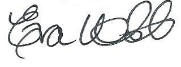 Eva Webb